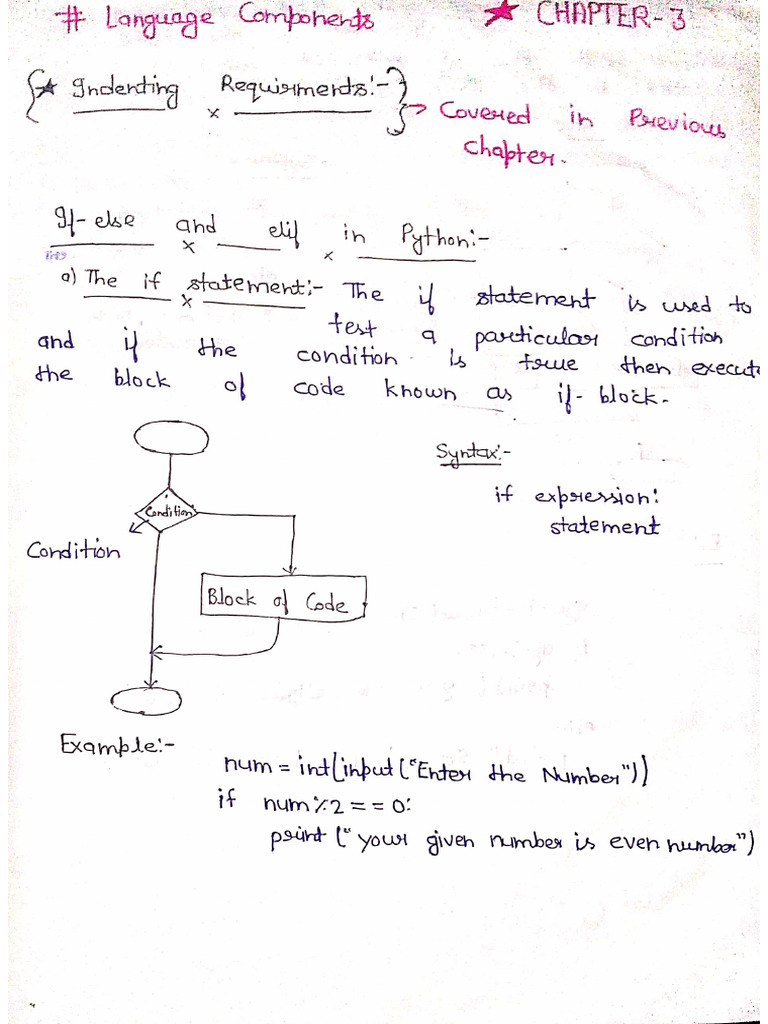 # Language Components ★ CHAPTER-3
{★ Indenting Requirments:-} → Covered in Previous
chapter.
If-else and elif in Python:-
a) The if statement:- The if statement is used to
test a particular condition
and if the condition is true then execute
the block of code known as if-block.
Syntax:-
if expression:
statement
Condition
Condition
Block of Code
Example:-
num = int(input("Enter the Number"))
if num%2 == 0:
print ("your given number is even number")